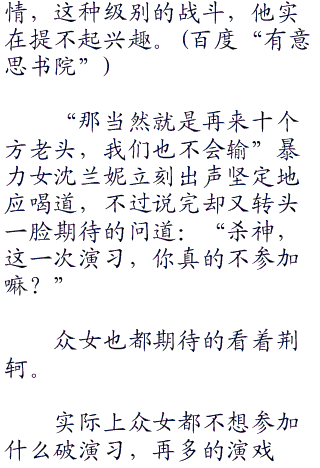 情，这种级别的战斗，他实
在提不起兴趣。(百度“有意
思书院”)
“那当然就是再来十个
方老头，我们也不会输”暴
力女沈兰妮立刻出声坚定地
应喝道，不过说完却又转头
一脸期待的问道：“杀神，
这一次演习，你真的不参加
嘛？”
众女也都期待的看着荆
轲。
实际上众女都不想参加
什么破演习，再多的演戏